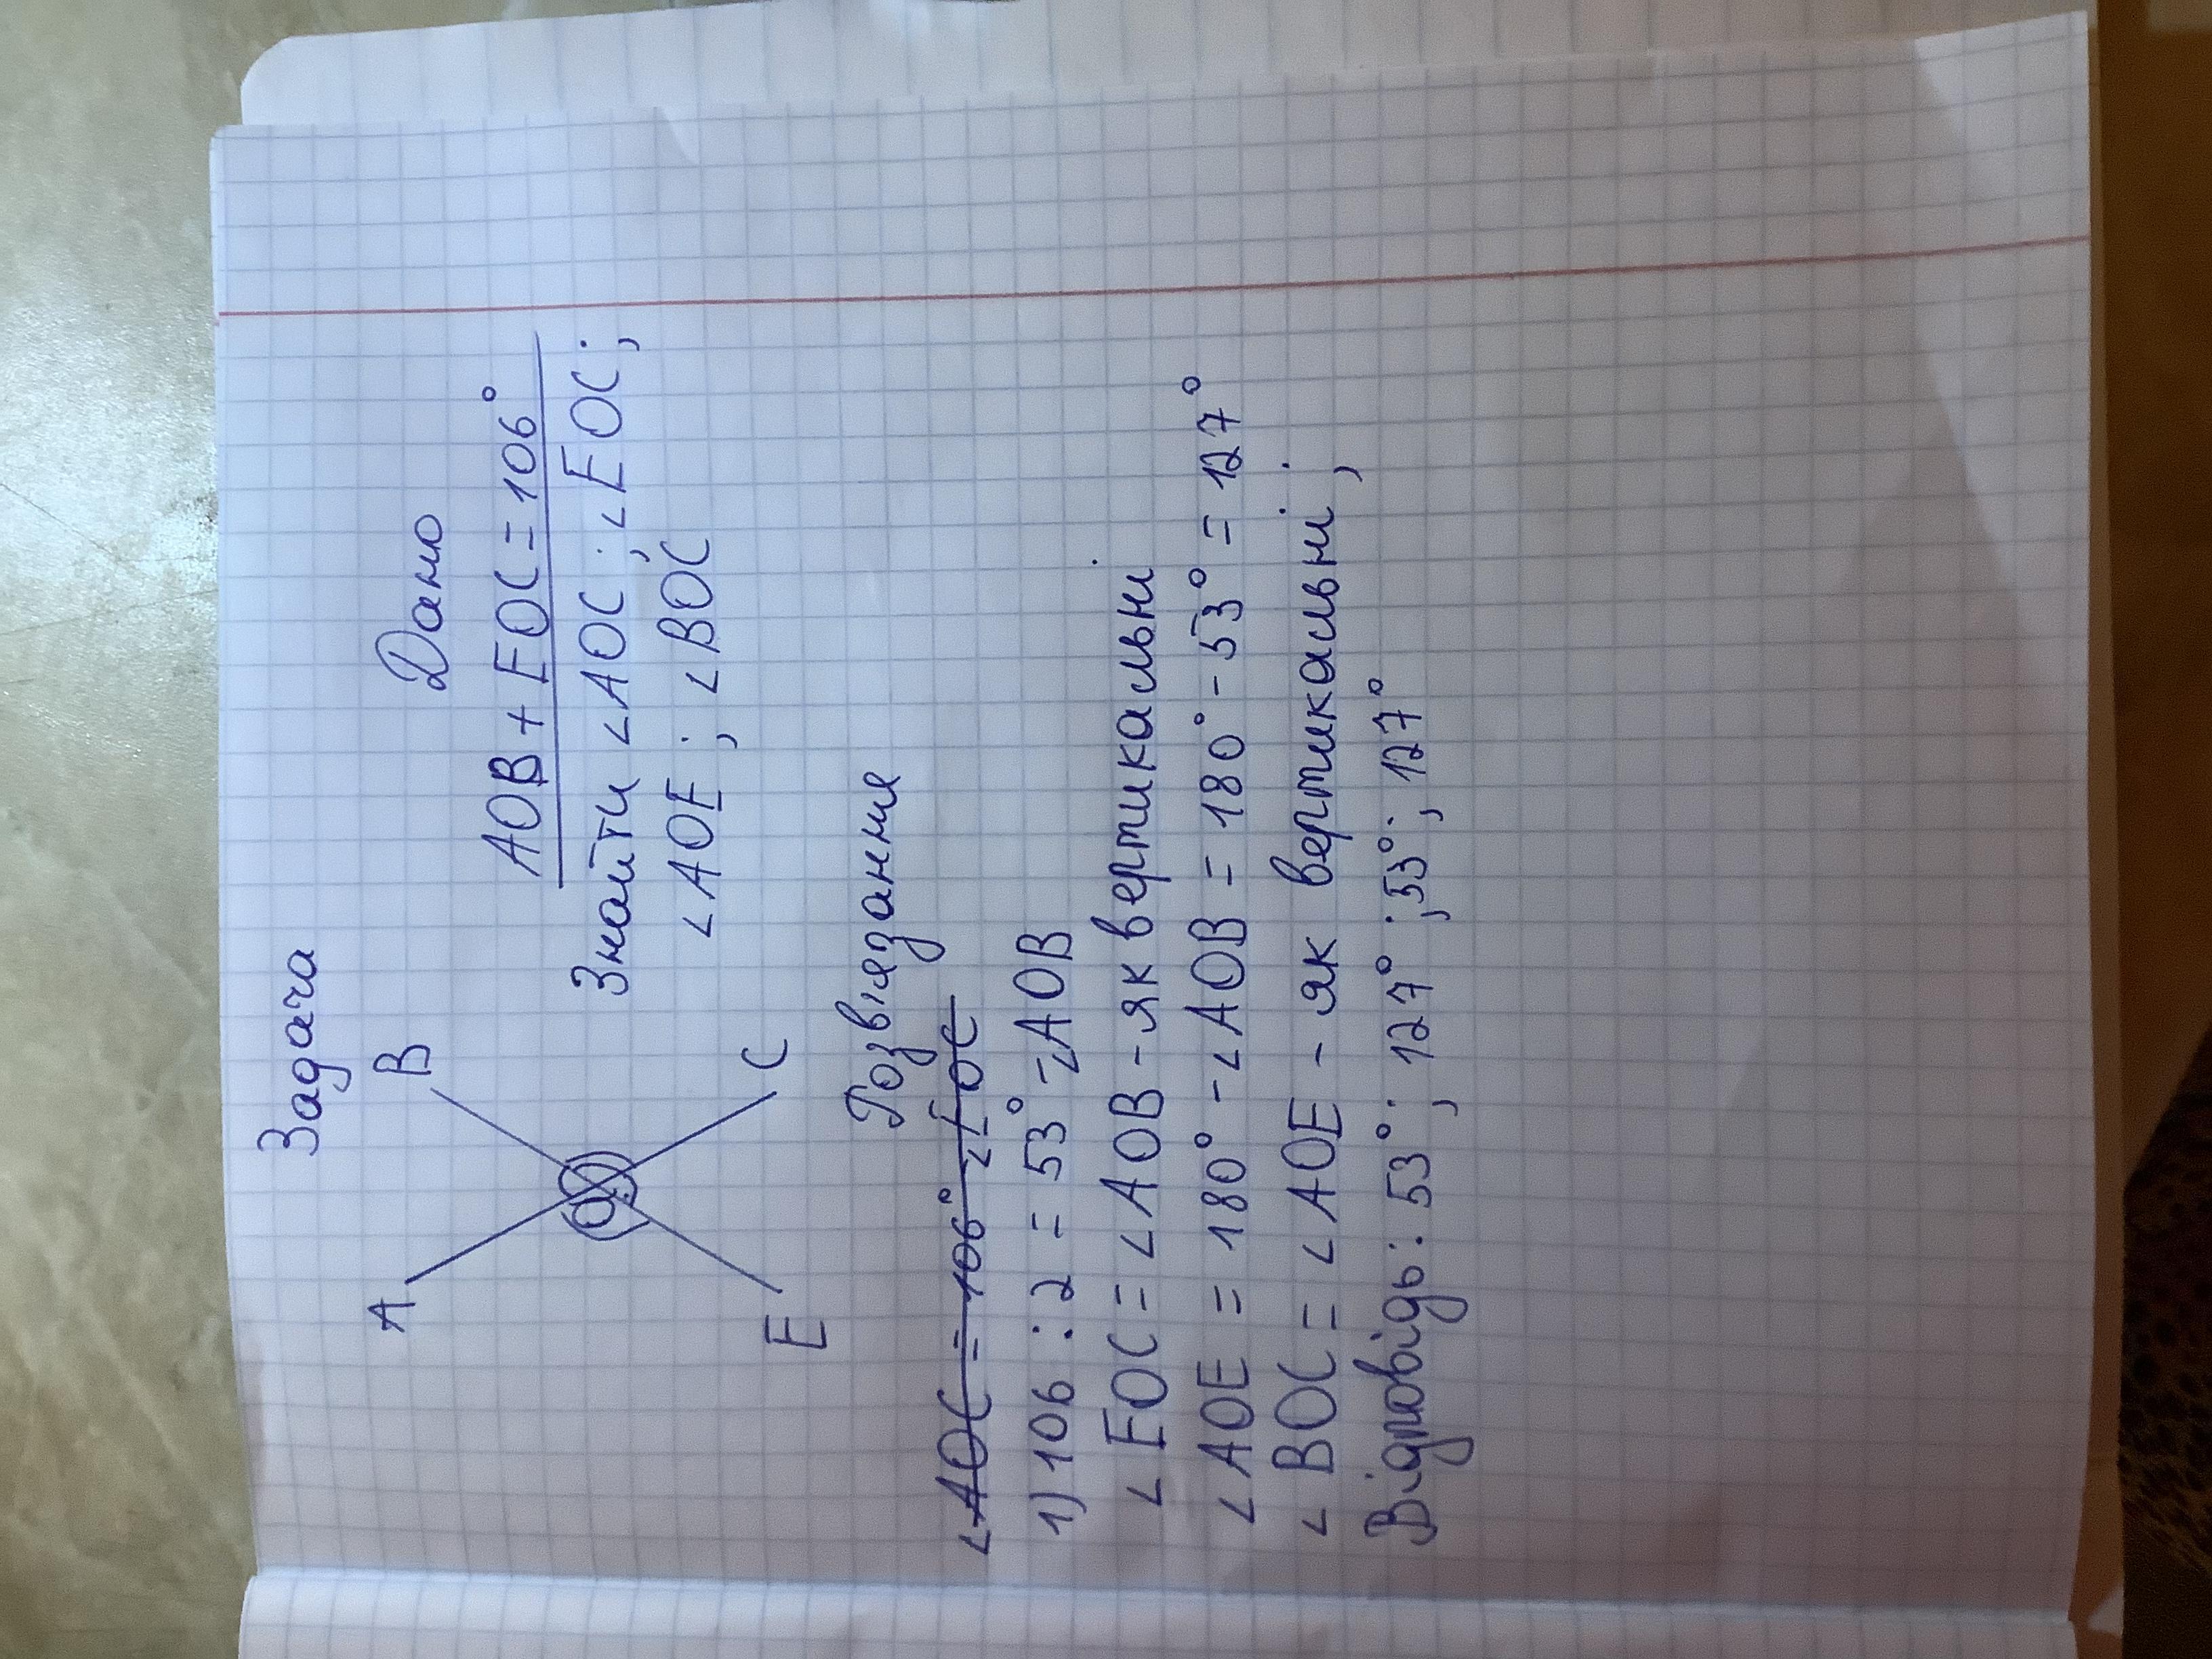 Задача
A B
O
E C
Дано
AOB + EOC = 106°
Знайти ∠AOC; ∠EOC;
∠AOE; ∠BOC
Розв'язання
∠AOC = 106° ∠EOC
1) 106 : 2 = 53° - ∠AOB
∠EOC = ∠AOB - як вертикальні
∠AOE = 180° - ∠AOB = 180° - 53° = 127°
∠BOC = ∠AOE - як вертикальні;
Відповідь: 53°; 127°; 53°; 127°